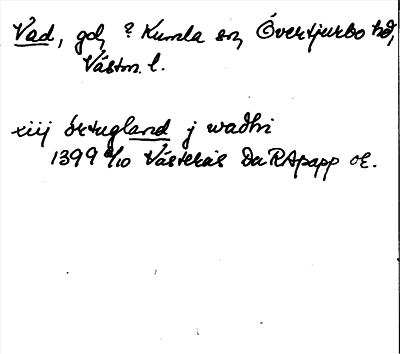 Vad, gd, ? Kumla sn, Övertjurbo hd,
Västm. l.
xiij örtugland j wadhi
1399 8/10 Västerås Da RApapp or.